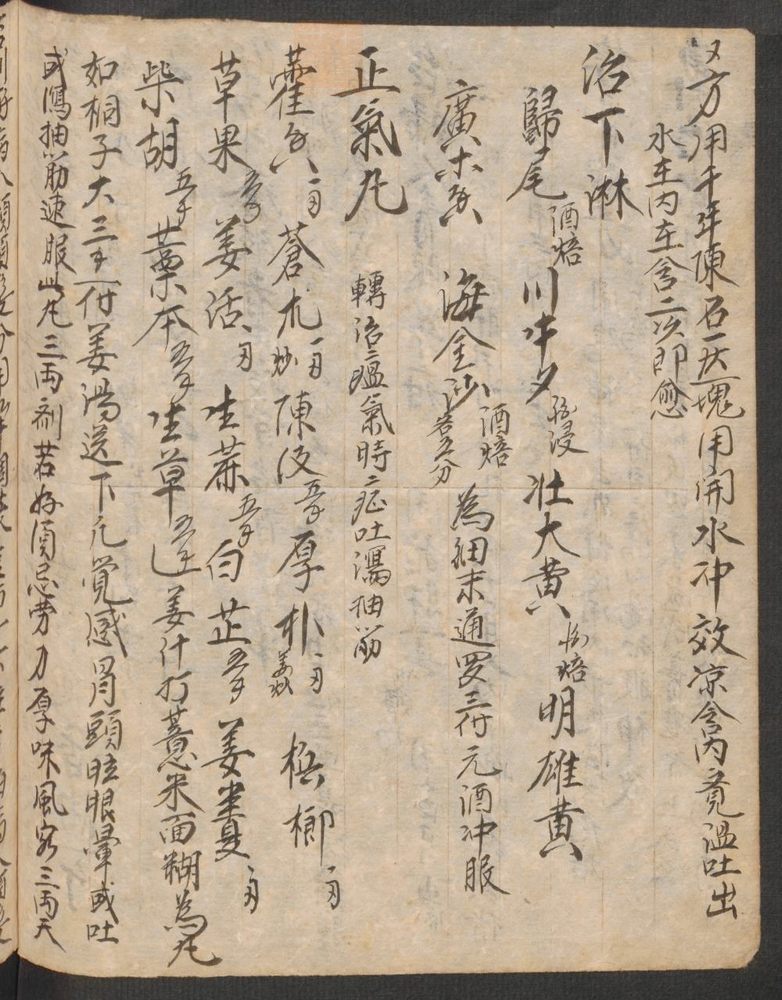 又方用千年陳石一大塊用開水冲效凉含內竟溫吐出
水在內在含二次即愈
治下淋
歸尾酒焙 川牛夕酒浸 壯大黃酒焙 明雄黃
廣木香 海金沙酒焙各五分 為細末通罗三付元酒冲服
正氣丸 轉治瘟氣時症吐瀉抽筋
藿香一两 蒼术炒一两 陳皮五錢 厚朴姜炒一两 梹榔一两
草果五錢 羌活一两 生麻五錢 白芷五錢 姜半夏一两
柴胡五錢 藁本五錢 生草五錢 姜汁打薏米面糊為丸
如桐子大三錢一付姜湯送下凡覺感冒頭眩眼暈或吐
或瀉抽筋速服此丸三両剂若好須忌劳力厚味風寒三両天